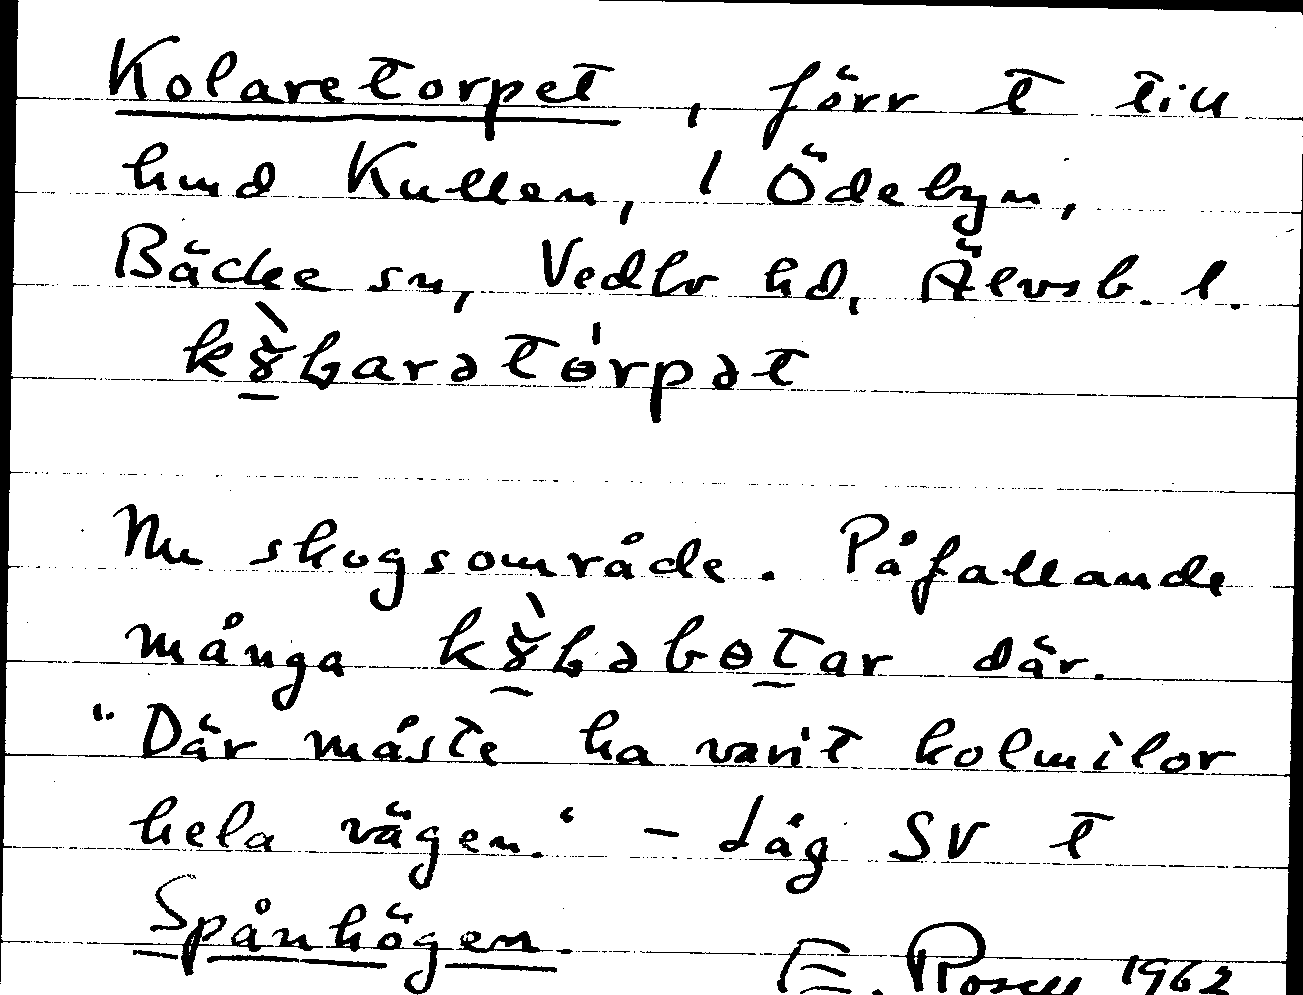 Kolaretorpet, förr t till
hmd Kullen, 1 Ödebyn,
Bäcke sn, Vedbo hd, Älvsb. l.
Nu skogsområde. Påfallande
många där.
"Där måste ha varit kolmilor
hela vägen." - Låg SV t
Spånhögen.
E. Rosell 1962